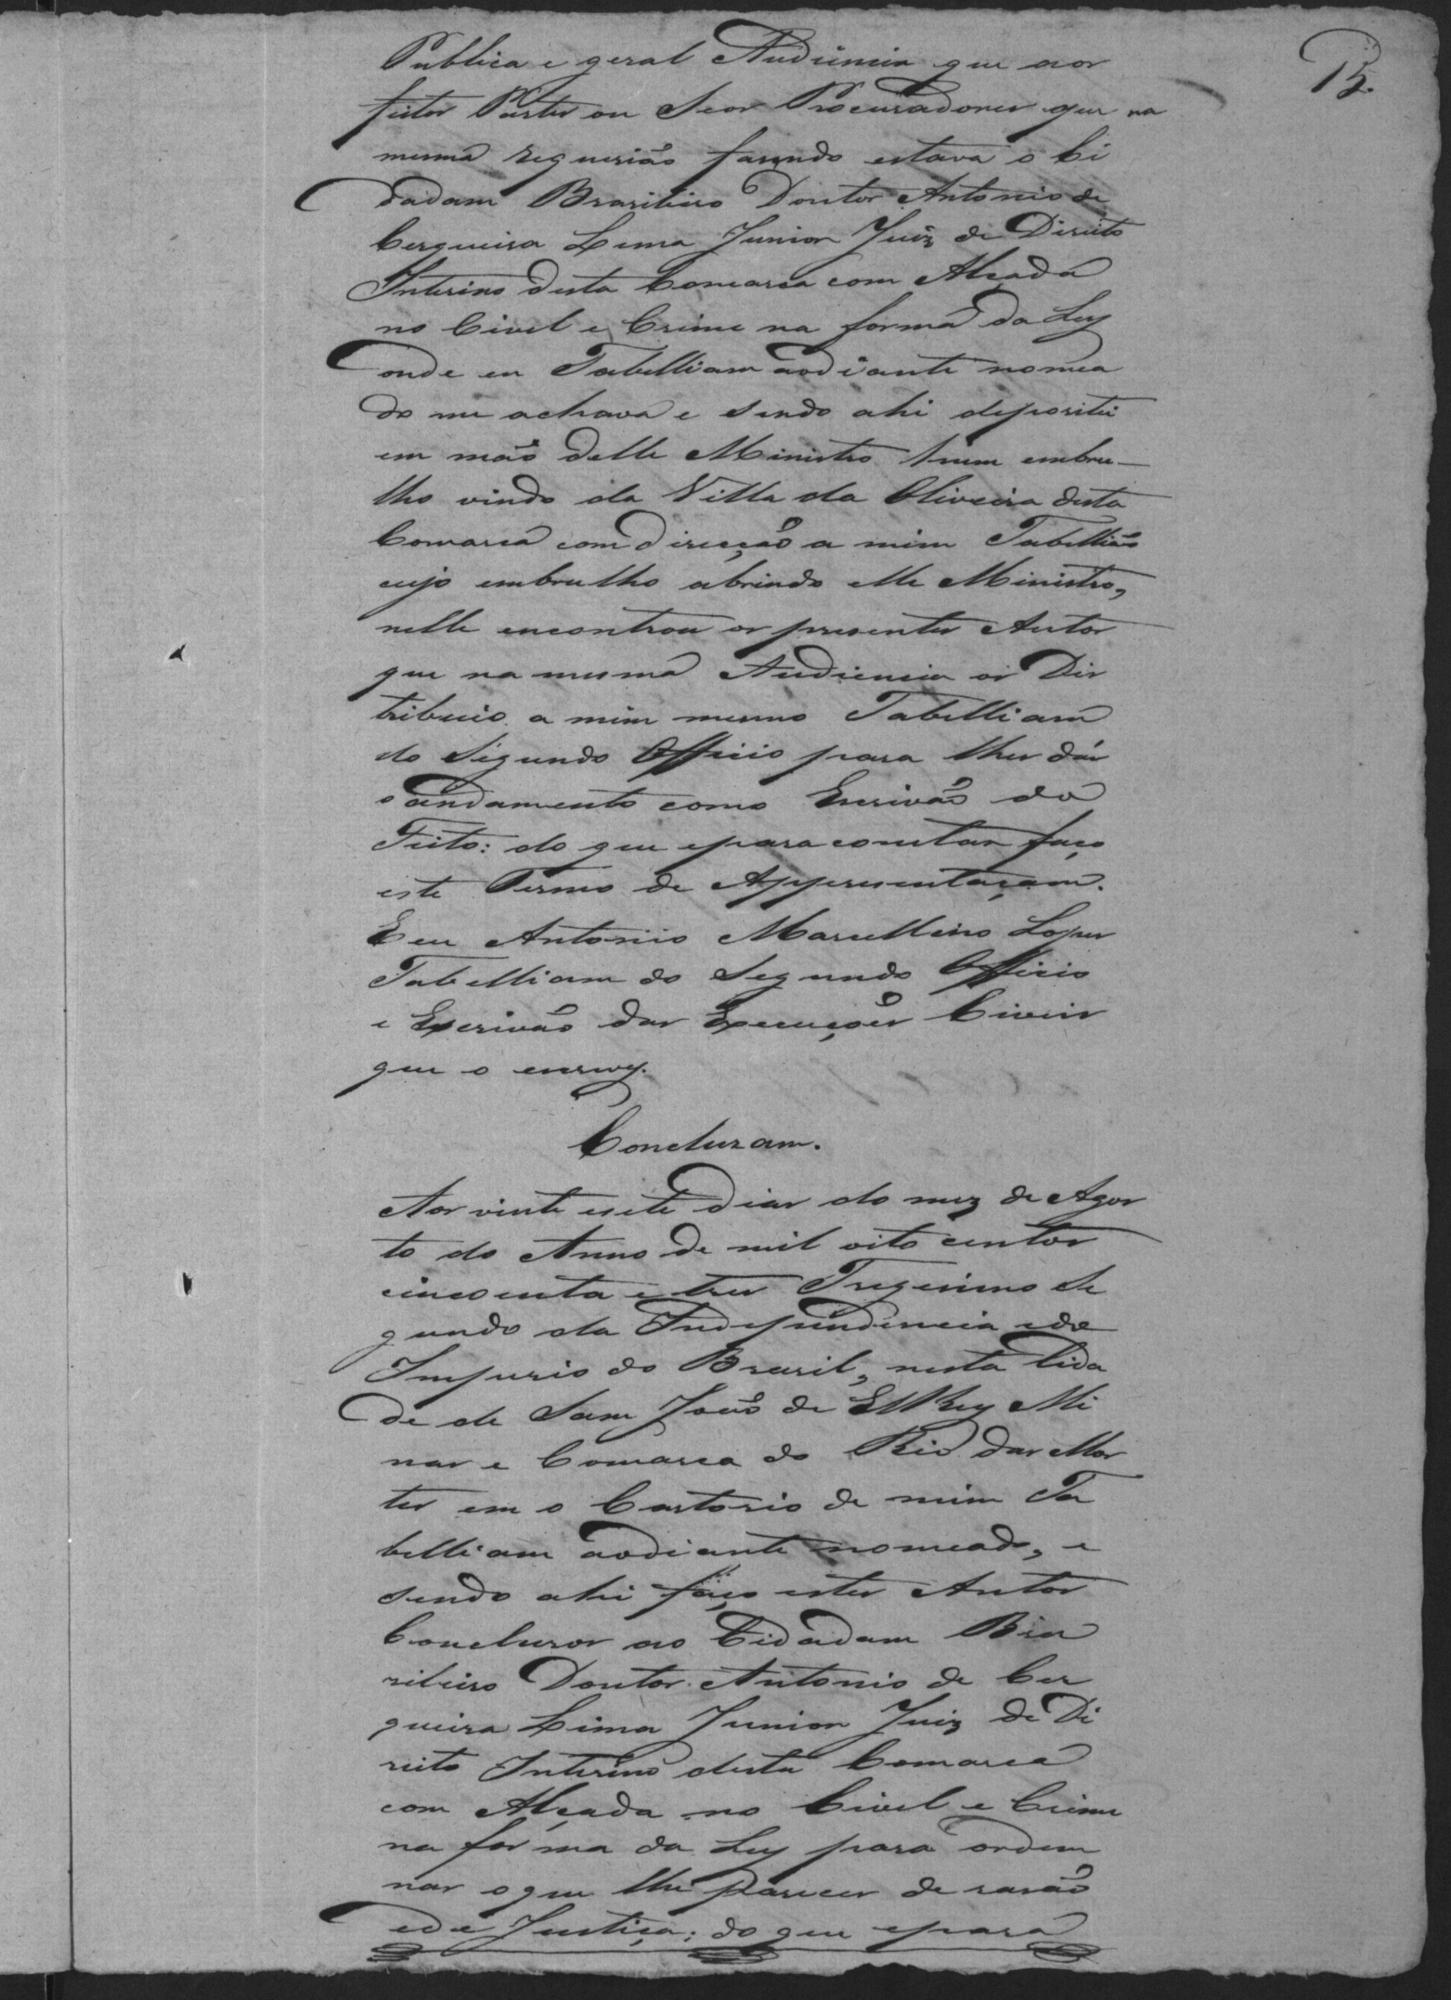 Publica e geral Audiencia que aos
feitos Partes ou Seos Procuradores que na
mesma requeriáo fasendo estava o Ci
dadam Brasileiro Doutor Antonio de
Cerqueira Lima Junior Juiz de Direito
Interino desta Comarca com Alçada
no Civel e Crime na forma da Ley
onde eu Tabelliam aodiante nomea
do me achava e sendo ahi depositei
em mão delle Ministro hum embru-
lho vindo da Villa da Oliveira desta
Comarca com direcção a mim Tabellião
cujo embrulho abrindo elle Ministro,
nelle encontrou os presentes Autos
que na mesma Audiencia os Dis
tribuio a mim mesmo Tabelliam
do Segundo Officio para lhes dár
o andamento como Escrivão do
Feito: do que e para constar faço
este Termo de Appresentaçam.
E eu Antonio Marcellino Lopes
Tabelliam do Segundo Officio
e Escrivão das Execuções Civeis
que o escrevy.
Concluzam.
Aos vinte e sete Dias do mez de Agos
to do Anno de mil oito centos
cincoenta e tres Tregesimo Se
gundo da Independencia e do
Imperio do Brasil, nesta Cida
de de Sam João de ElRey Mi
nas e Comarca do Rio das Mor
tes em o Cartorio de mim Ta
belliam aodiante nomeado, e
sendo ahi faço estes Autos
Concluzos ao Cidadam Bra
sileiro Doutor Antonio de Cer
queira Lima Junior Juiz de Di
reito Interino desta Comarca
com Alçada no Civel e Crime
na forma da Ley para orde
nar o que lhe parecer de rasão
e de Justiça; do que e para